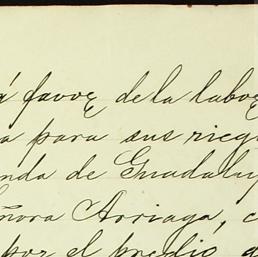 á favor de la labor
a para sus riego
nda de Guadalup
eñora Arriaga, c
por el predio a